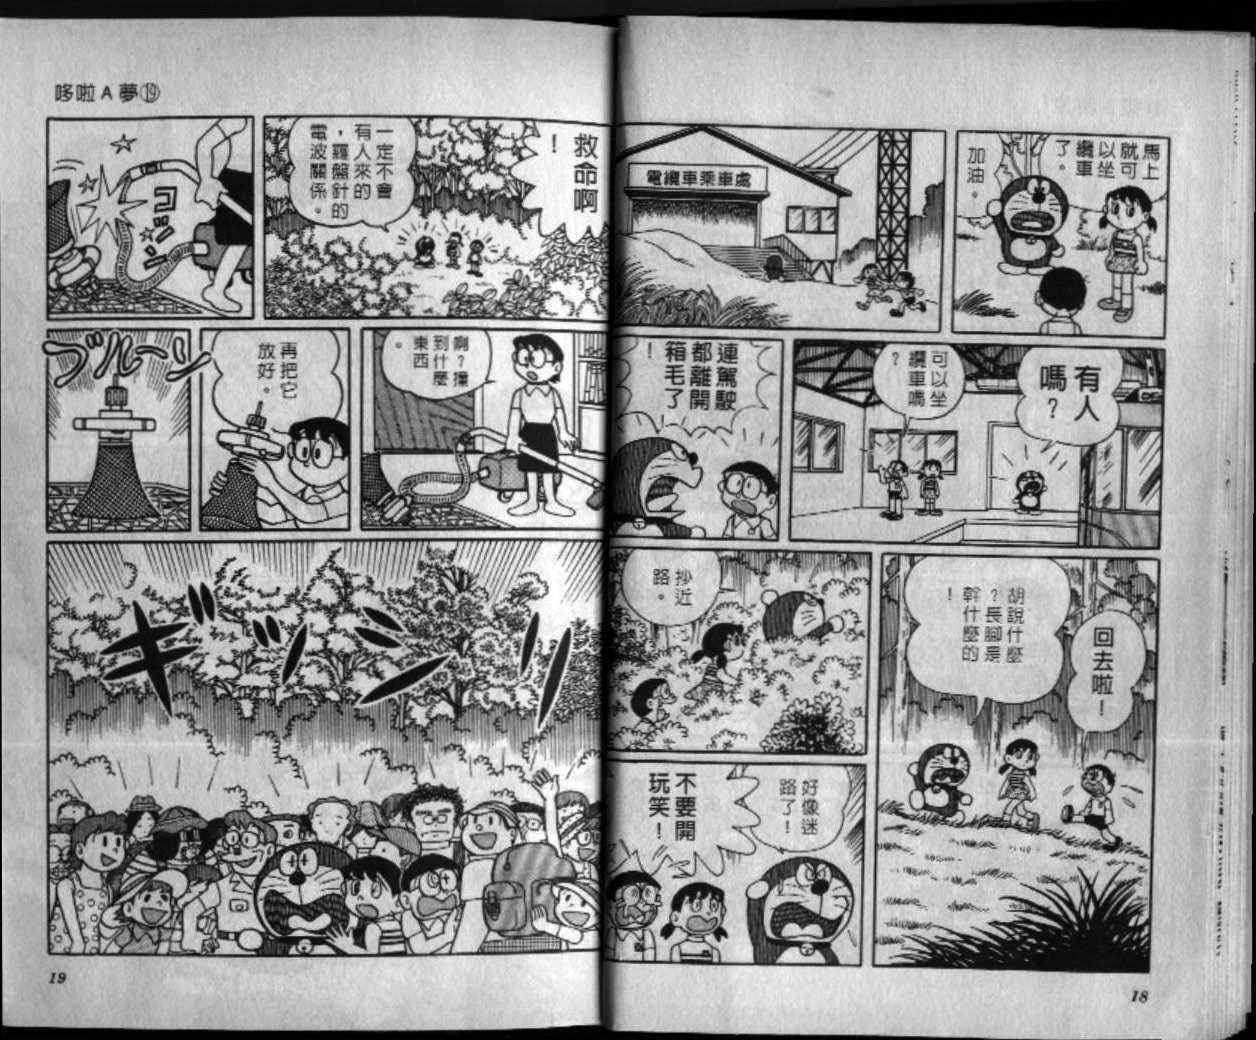 馬上
就可
以坐
纜車
了。
加油。
電纜車乘車處
有人
嗎?
可以坐
纜車嗎
?
連駕駛
都離開
箱毛了
!
回去啦!
胡說什麼
?長腳是
幹什麼的
!
抄近
路。
好像迷
路了!
不要開
玩笑!
18
哆啦A夢⑲
救命啊
!
一定不會
有人來的
,羅盤針的
電波關係。
ゴツン
啊?撞
到什麼
東西
。
再把它
放好。
ブルーン
ギーン
19